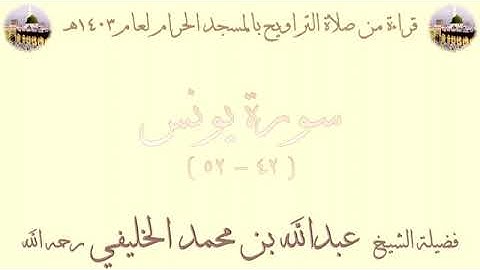 قراءة من صلاة التراويح بالمسجد الحرام لعام ١٤٠٣هـ
سورة يونس
( ٤٢ - ٥٢ )
فضيلة الشيخ عبدالله بن محمد الخليفي رحمه الله